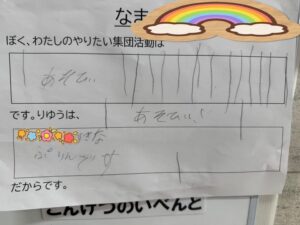 なま
ぼく、わたしのやりたい集団活動は
あそびい
です。りゆうは、
あそびい!
はな
だからです。
こんげつのいべんと